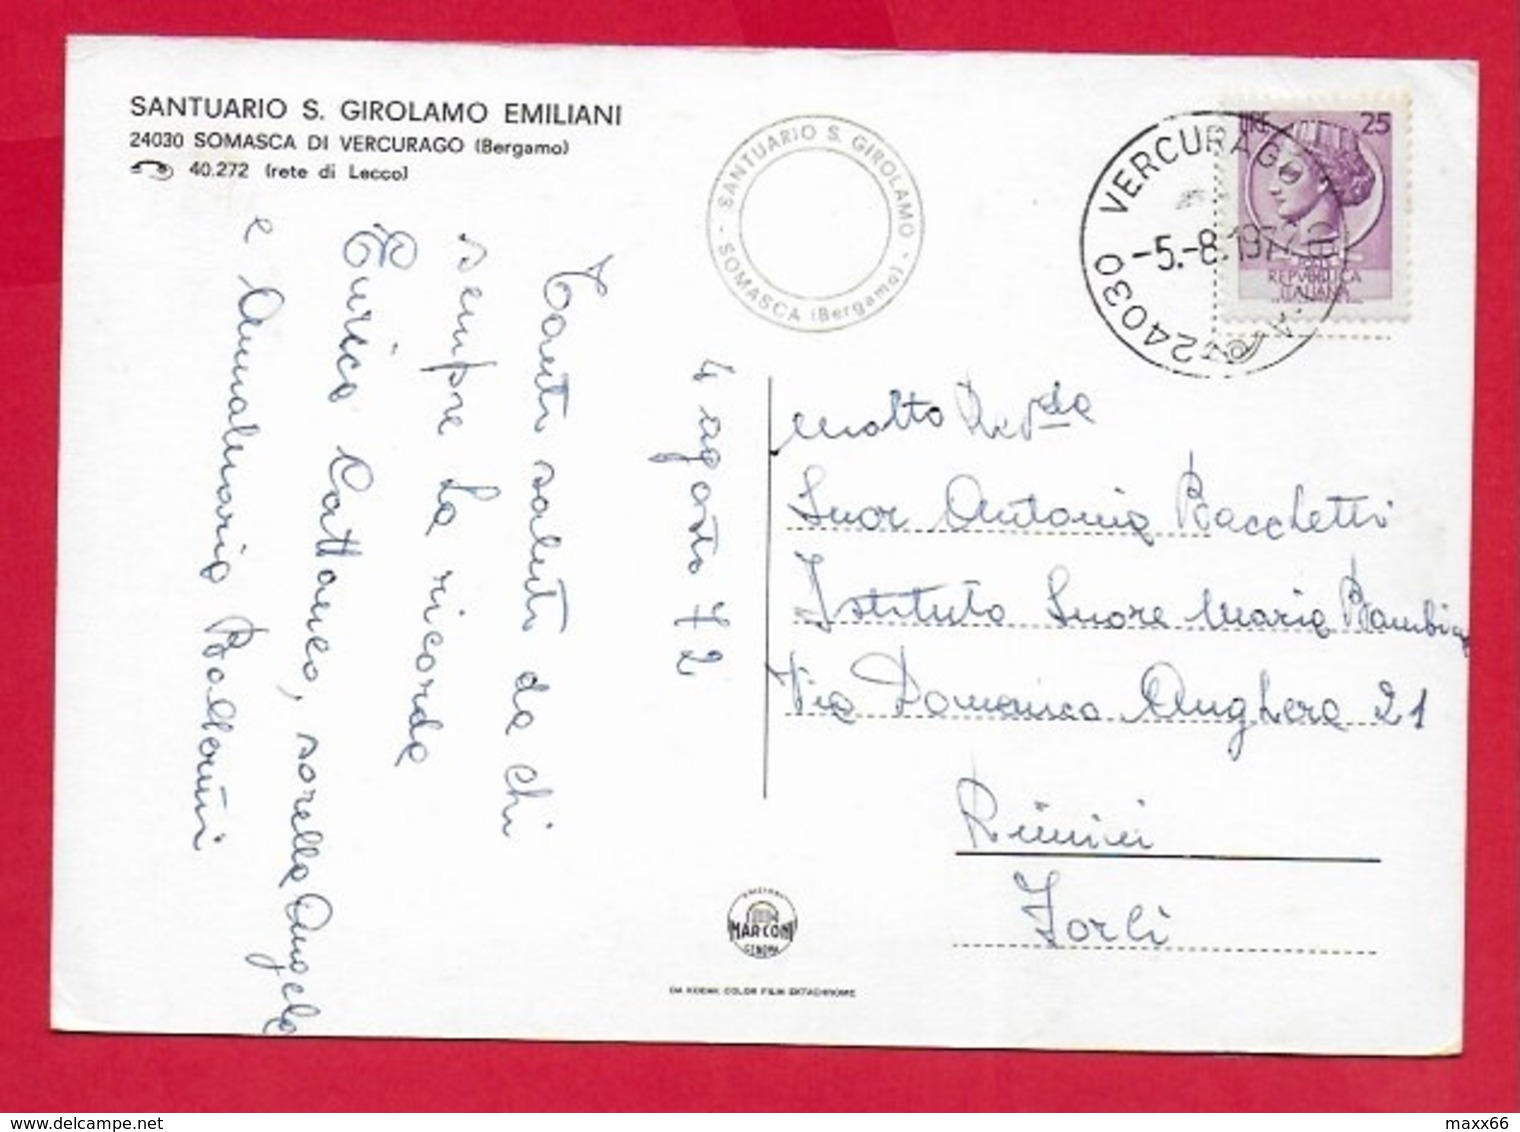 SANTUARIO S. GIROLAMO EMILIANI
24030 SOMASCA DI VERCURAGO (Bergamo)
40.272 (rete di Lecco)
SANTUARIO S. GIROLAMO
- SOMASCA (Bergamo) -
24030 VERCURAGO
-5.-8.197
LIRE 25
REPVBBLICA
ITALIANA
4 agosto 72
Tanti saluti da chi
sempre La ricorda
Enrica Cattaneo, sorella Angela
e Annamaria Ballerini
Molto Rev.da
Suor Antonia Bacchetti
Istituto Suore Maria Bambina
Via Domenico Anghera 21
Rimini
Forlì
EDIZIONI
MARCONI
GENOVA
DA KODAK COLOR FILM EKTACHROME
maxx66